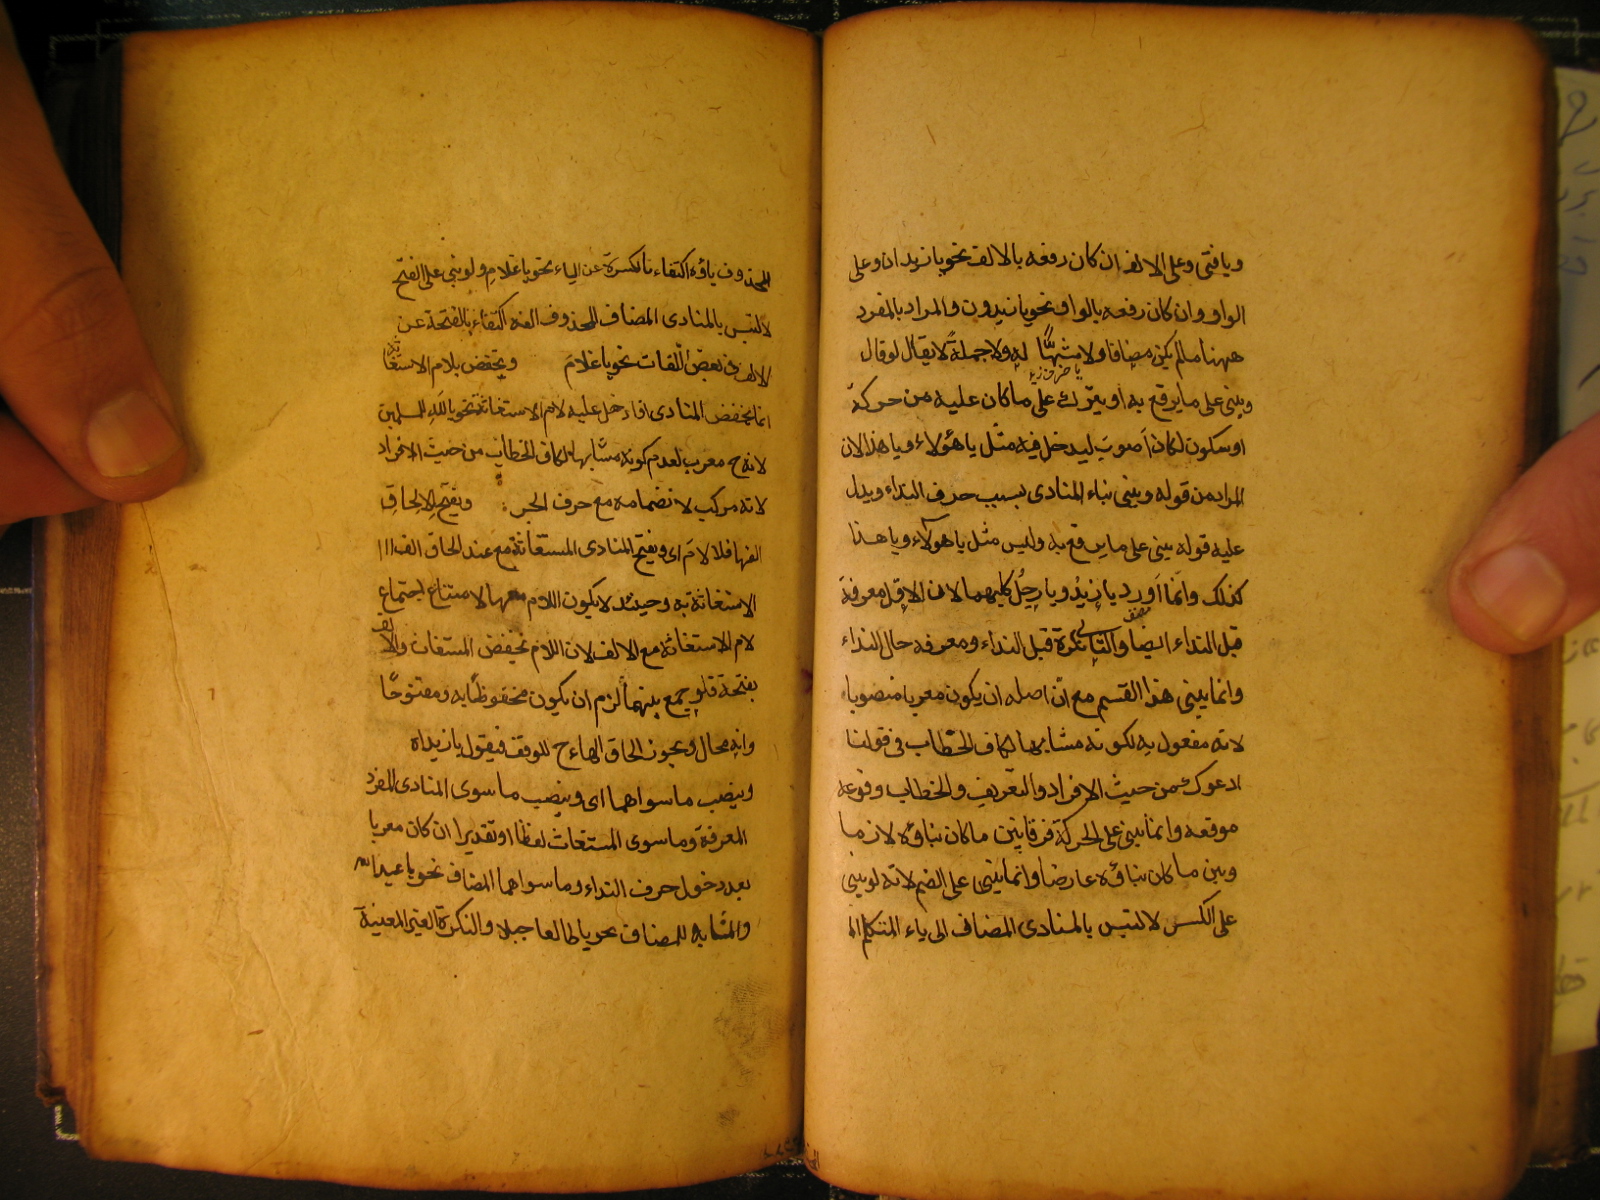 ويا فتى وعلى الالف ان كان رفعه بالالف نحو يا زيدان وعلى
الواو وان كان رفعه بالواو نحو يا زيدون والمراد بالمفرد
ههنا ما لم يكن مضافا ولا مشبها له ولا جملة لا يقال لو قال
ويبنى على ما يرفع به او يترك على ما كان عليه من حركة
او سكون لكان اصوب ليدخل فيه مثل يا هؤلاء ويا هذا لان
المراد من قوله ويبنى بناء المنادى بسبب حرف النداء ويدل
عليه قوله يبنى على ما يرفع به وليس مثل يا هؤلاء ويا هذا
كذلك وانما اورد يا زيد ويا رجل كليهما لان الاول معرفة
قبل النداء ايضا والثانى نكرة قبل النداء ومعرفة حال النداء
وانما يبنى هذا القسم مع ان اصله ان يكون معربا منصوبا
لانه مفعول به لكونه مشابها لكاف الخطاب فى قولنا
ادعوك من حيث الافراد والتعريف والخطاب وقوعه
موقعه وانما يبنى على الحركة فرقا بين ما كان بناؤه لازما
وبين ما كان بناؤه عارضا وانما يبنى على الضم لانه لو بنى
على الكسر لالتبس بالمنادى المضاف الى ياء المتكلم
المحذوف ياؤه اكتفاء بالكسرة عن الياء نحو يا غلام ولو بنى على الفتح
لالتبس بالمنادى المضاف المحذوف الفه اكتفاء بالفتحة عن
الالف فى بعض اللغات نحو يا غلام ويخفض بلام الاستغاثة
انما يخفض المنادى اذا دخل عليه لام الاستغاثة نحو يا لله للمسلمين
لانه ح معرب لعدم كونه مشابها لكاف الخطاب من حيث الافراد
لانه مركب لانضمامه مع حرف الجر ويفتح لالحاق
الفها فلا لام اى ويفتح المنادى المستغاث به عند الحاق الف
الاستغاثة به وحينئذ لا يكون اللام معها لامتناع اجتماع
لام الاستغاثة مع الالف لان اللام تخفض المستغاث والالف
بفتحه فلو جمع بينهما لزم ان يكون مخفوظا به ومفتوحا
وانه محال ويجوز الحاق الهاء ح للوقف فيقول يا زيداه
وينصب ما سواهما اى وينصب ما سوى المنادى المفرد
المعرفة وما سوى المستغاث لفظا او تقديرا ان كان معربا
بعد دخول حرف النداء وما سواهما المضاف نحو يا عبد الله
والمشابه للمضاف نحو يا طالعا جبلا والنكرة الغير المعينة